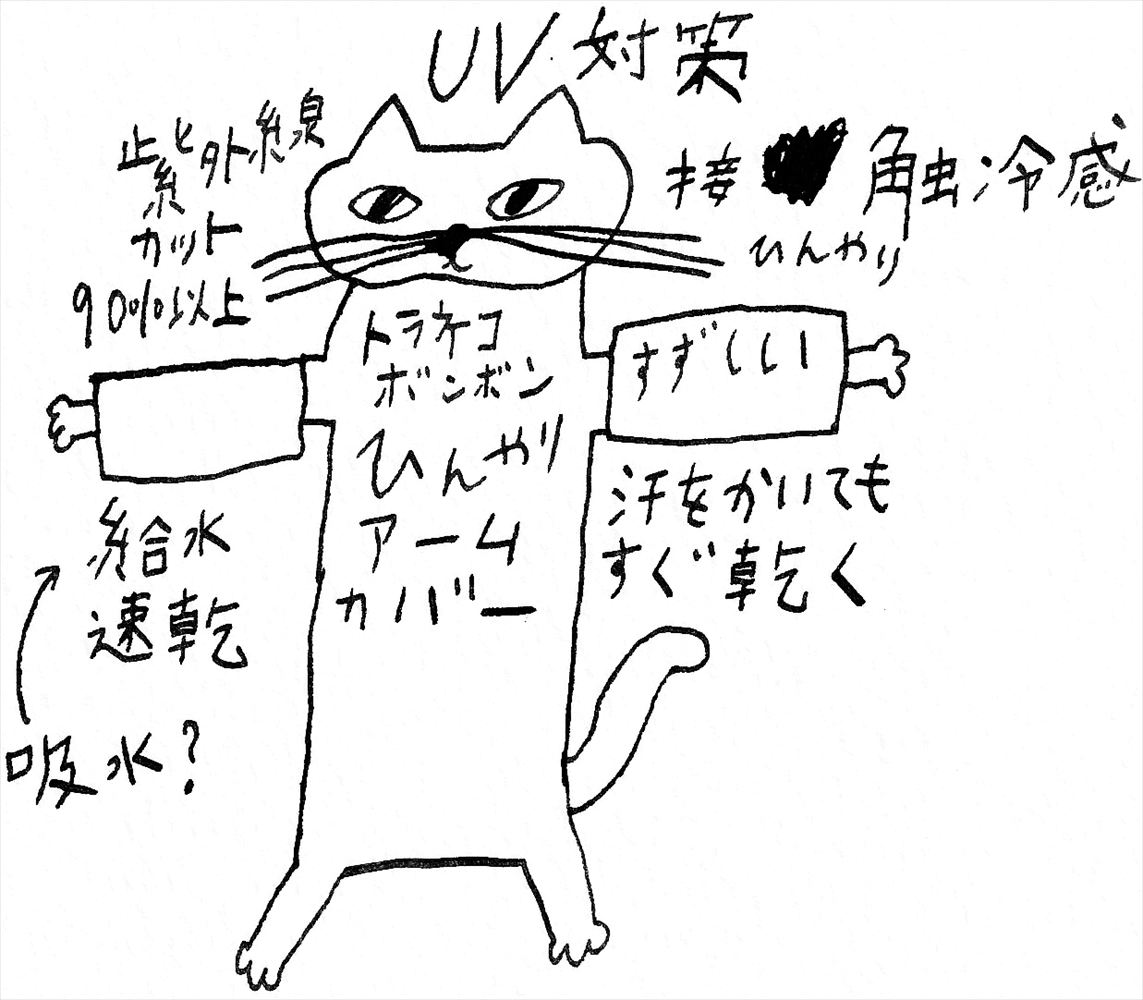 UV対策
紫外線
カット
90%以上
接触冷感
ひんやり
トラネコ
ボンボン
ひんやり
アーム
カバー
すずしい
汗をかいても
すぐ乾く
給水
速乾
吸水?